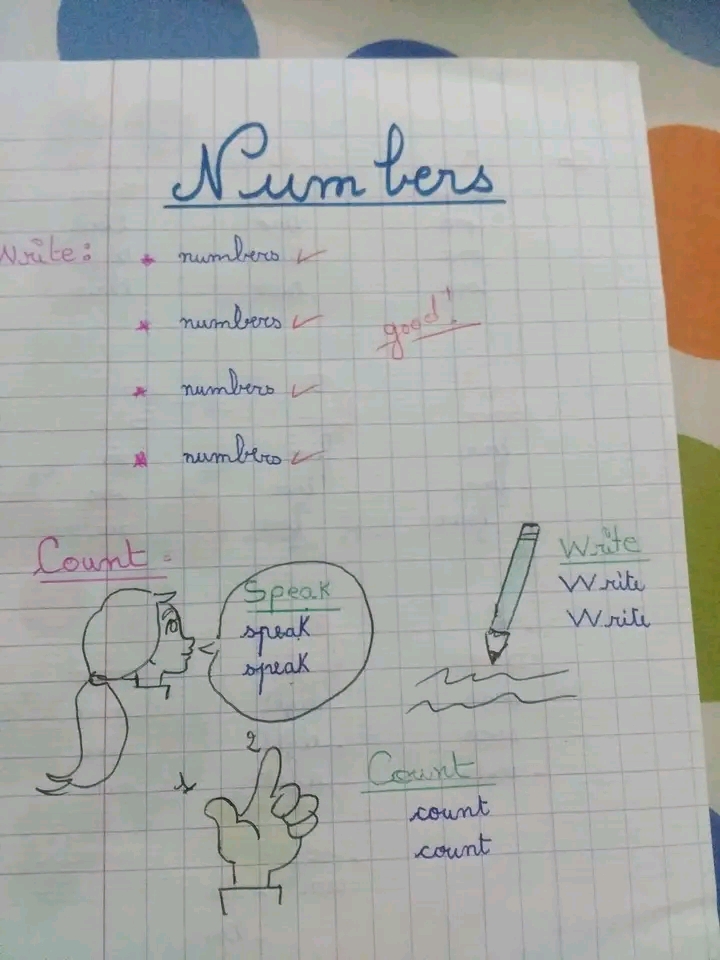 Numbers
Write: * numbers ✓
* numbers ✓
good!
* numbers ✓
* numbers ✓
Count:
Speak
speak
speak
Write
Write
Write
2
1
Count
count
count